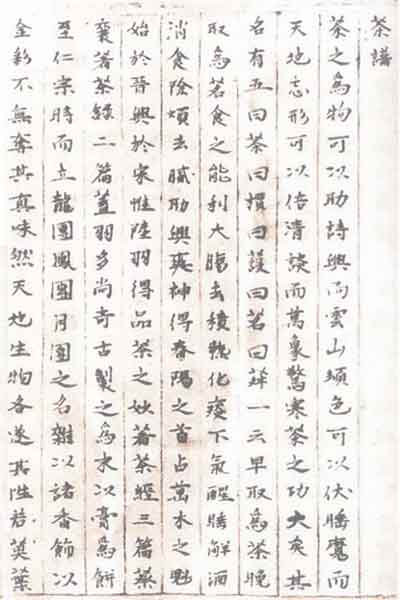 茶譜
茶之為物可以助詩興而雲山頓色可以伏睡魔而
天地忘形可以倍清談而萬象驚寒茶之功大矣其
名有五曰茶曰檟曰蔎曰茗曰荈一云早取為茶晚
取為茗食之能利大腸去積熱化痰下氣醒睡解酒
消食除煩去膩助興爽神得春陽之首占萬木之魁
始於晉興於宋惟陸羽得品茶之妙著茶經三篇蔡
襄著茶錄二篇蓋羽多尚奇古製之為末以膏為餅
至仁宗時而立龍團鳳團月團之名雜以諸香飾以
金彩不無奪其真味然天地生物各遂其性若莫葉